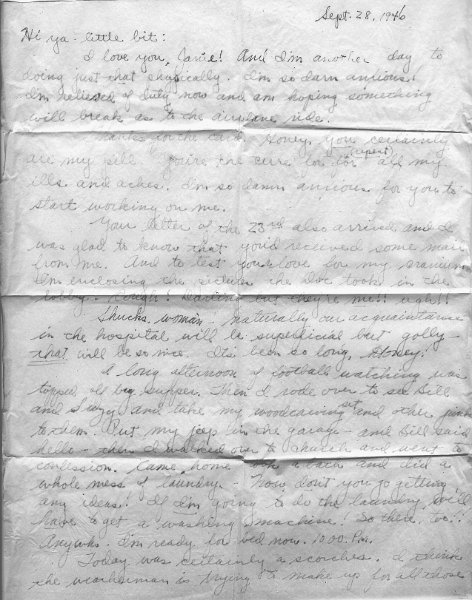 Sept. 28, 1946
Hi ya - little bit:
I love you, Janie! And I'm another day to
doing just that physically. I'm so darn anxious!
I'm relieved of duty now and am hoping something
will break as to the airplane ride.
Thanks for the card, Honey, you certainly
are my pill. You're the cure for all my
ills and aches. I'm so damn anxious for you to
start working on me.
Your letter of the 23rd also arrived and I
was glad to know that you'd received some mail
from me. And to test your love for my
I'm enclosing the picture the Doc took in the
but they're me!! ugh!!
Shucks, woman! Naturally our acquaintance
in the hospital will be superficial but golly -
that will be so nice. It's been so long, Honey!
A long afternoon of football watching was
topped off by supper. Then I rode over to see Bill
and and take my woodcarving set and other
to them. Put my jeep in the garage - and Bill said
hello - then I walked over to church and went to
confession. Came home and did a
whole mess of laundry. - Now don't you go getting
any ideas! If I'm going to do the laundry, we'll
have to get a washing machine! So there, too!
Anyway. I'm ready for bed now. 10:00 P.M.
Today was certainly a scorcher. I think
the weatherman is trying to make up for all those